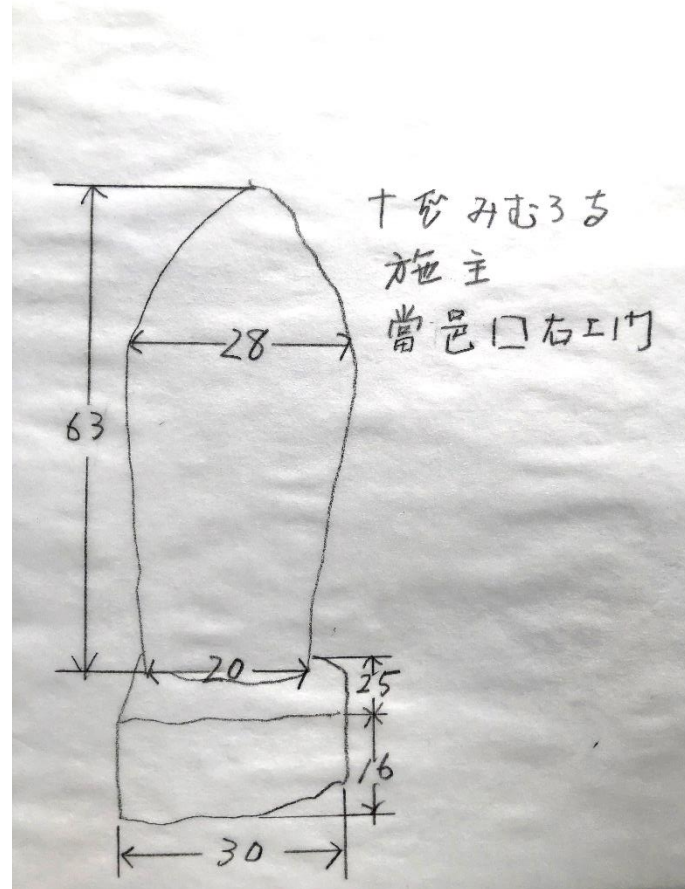 十 みむろ
施主
當邑□右エ门
28
63
20
25
16
30